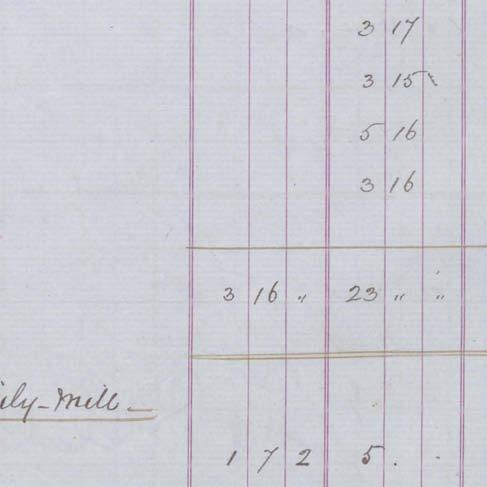 3 17
3 15
5 16
3 16
3 16 " 23 " "
ily-Mill
1 7 2 5 . .